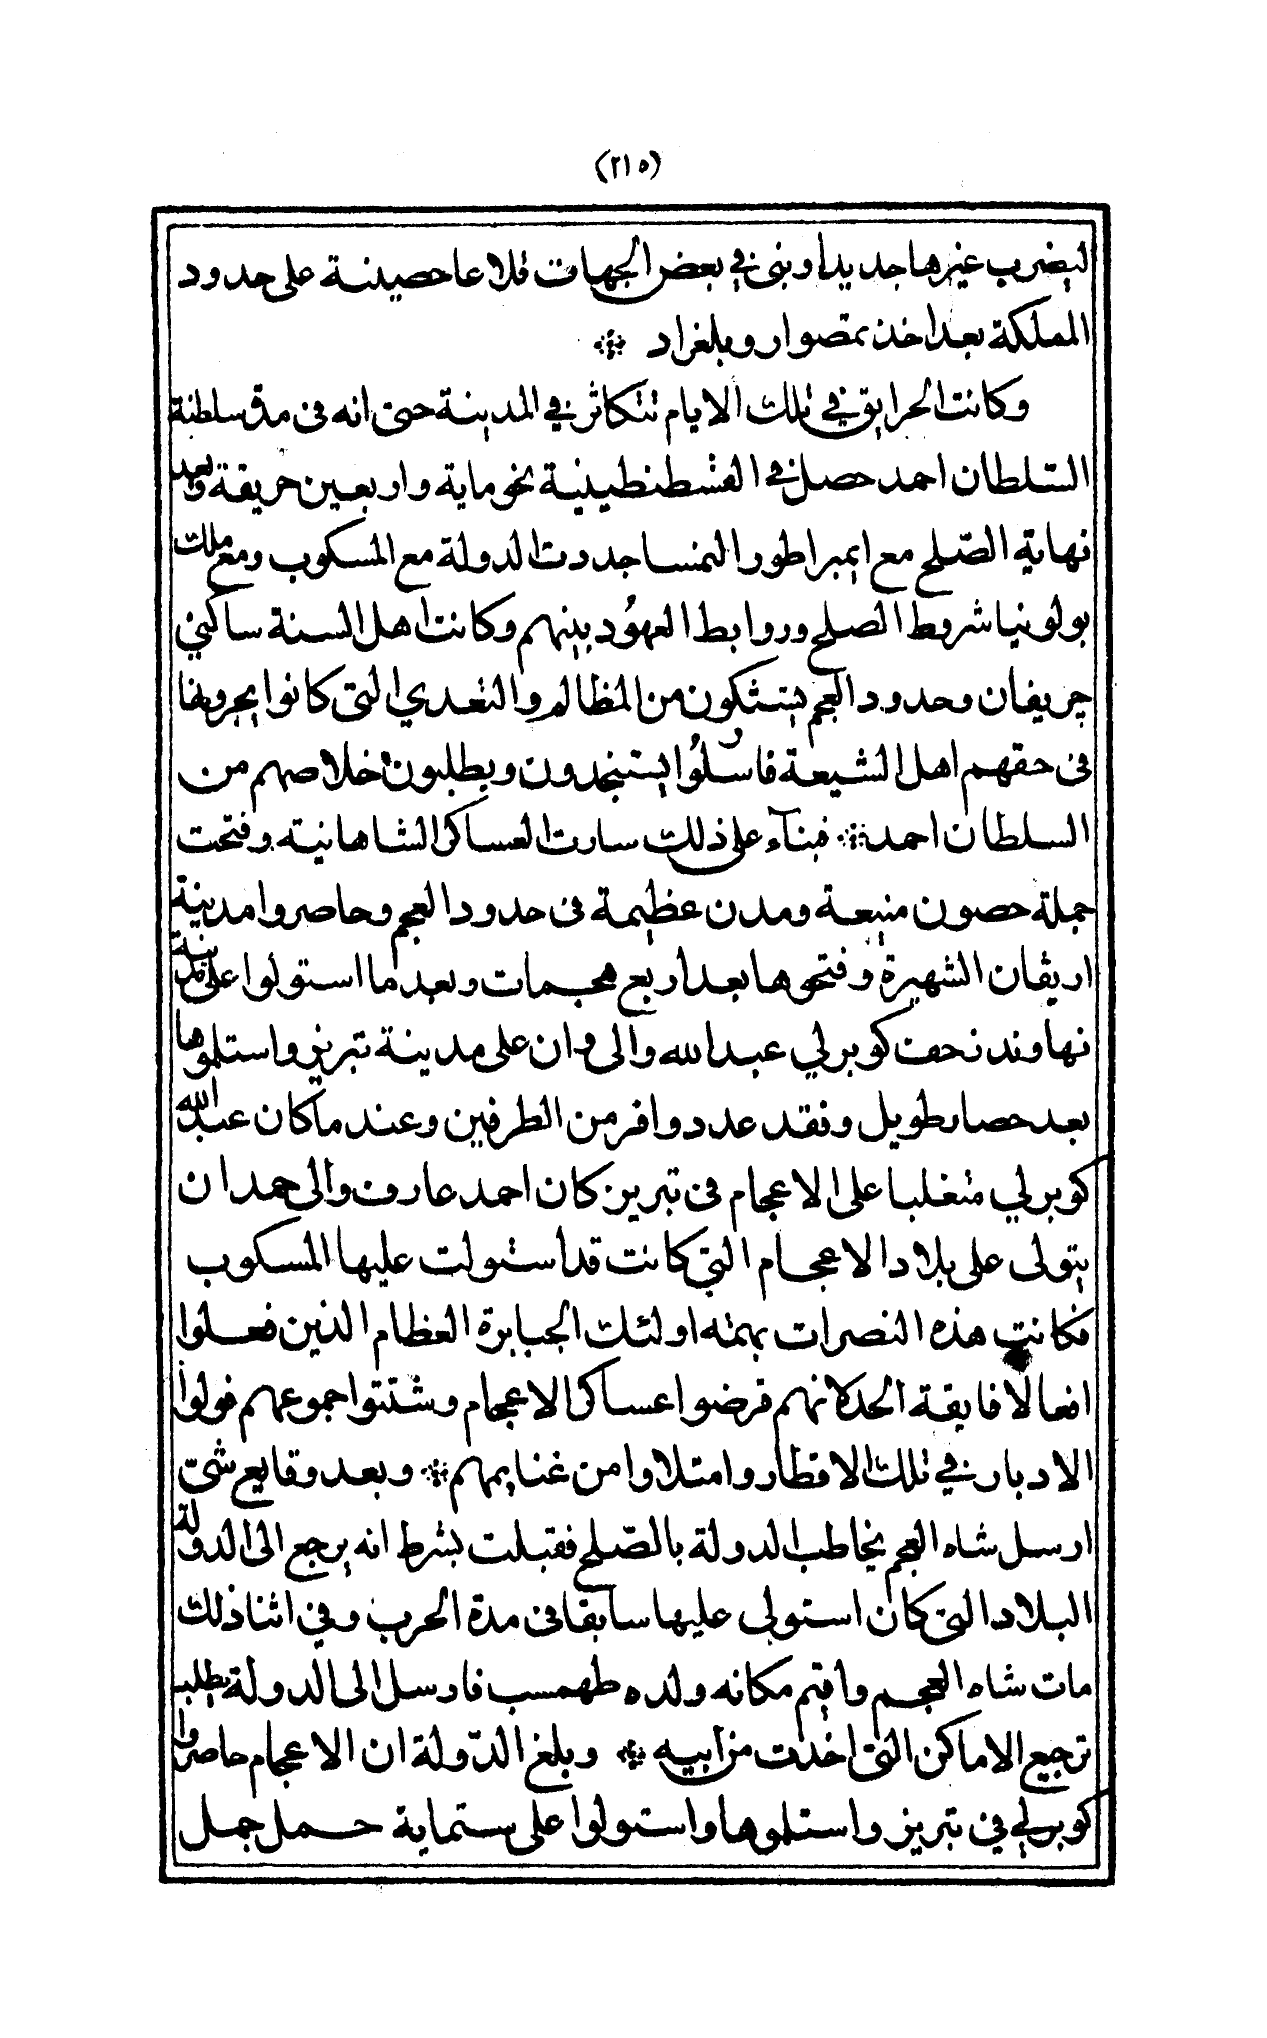 (٢١٥)
ليضرب غيرها جديدا وبنى في بعض الجهات قلاعا حصينة على حدود
المملكة بعد اخذ تمصوار وبلغراد ❊
وكانت الحرايق في تلك الايام تتكاثر في المدينة حتى انه فى مدة سلطنة
السّلطان احمد حصل في القسطنطينية نحو ماية واربعين حريقة وبعد
نهاية الصّلح مع ايمبراطور النمسا جددت الدولة مع المسكوب ومع ملك
بولونيا شروط الصلح وروابط العهود بينهم وكانت اهل السنة ساكني
چريفان وحدود العجم يتشكون من المظالم والتعدي التى كانوا يجروها
فى حقهم اهل الشيعة فارسلوا يستنجدون ويطلبون اخلاصهم من
السلطان احمد ❊ فبنآء على ذلك سارت العساكر الشاهانية وفتحت
جملة حصون منيعة ومدن عظيمة فى حدود العجم وحاصروا مدينة
اريڤان الشهيرة وفتحوها بعد اربع هجمات وبعد ما استولوا على مدينة
نهاوند زحف كوبرلي عبد الله والى وان على مدينة تبريز واستلموها
بعد حصار طويل وفقد عدد وافر من الطرفين وعند ما كان عبد الله
كوبرلي متغلبا على الاعجام فى تبريز كان احمد عارف والى حمدان
يتولى على بلاد الاعجام التي كانت قد استولت عليها المسكوب
فكانت هذه النصرات بهمة اولئك الجبابرة العظام الذين فعلوا
افعالا فايقة الحد لانهم قرضوا عساكر الاعجام وشتتوا جموعهم فولوا
الادبار في تلك الاقطار وامتلاوا من غنايمهم ❊ وبعد وقايع شتى
ارسل شاه العجم يخاطب الدولة بالصّلح فقبلت بشرط انه يرجع الى الدولة
البلاد التى كان استولى عليها سابقا فى مدة الحرب وفي اثنا ذلك
مات شاه العجم واقيم مكانه ولده طهمسب فارسل الى الدولة يطلب
ترجيع الاماكن التى اخذت من ابيه ❊ وبلغ الدّولة ان الاعجام حاصروا
كوبرلي في تبريز واستلموها واستولوا على ستماية حمل جمل